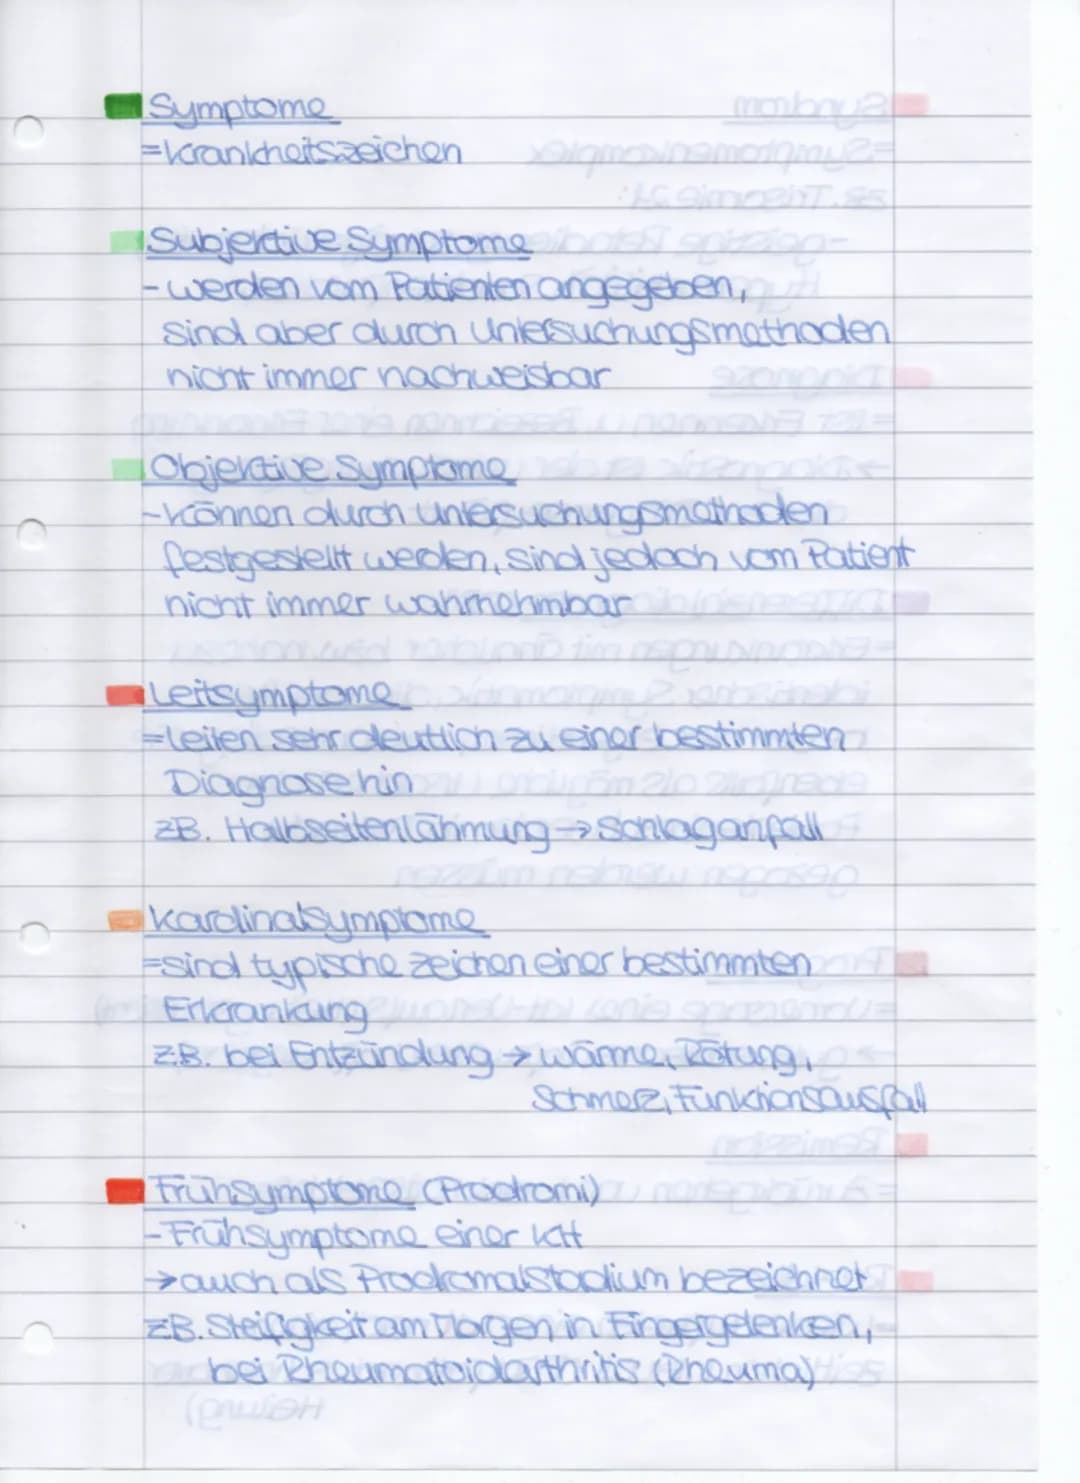 Symptome
=Krankheitszeichen
Subjektive Symptome
- werden vom Patienten angegeben,
sind aber durch Untersuchungsmethoden
nicht immer nachweisbar
Objektive Symptome
-können durch Untersuchungsmethoden
festgestellt werden, sind jedoch vom Patient
nicht immer wahrnehmbar
Leitsymptome
=leiten sehr deutlich zu einer bestimmten
Diagnose hin
zB. Halbseitenlähmung → Schlaganfall
Kardinalsymptome
=sind typische Zeichen einer bestimmten
Erkrankung
z.B. bei Entzündung → Wärme, Rötung,
Schmerz, Funktionsausfall
Frühsymptome (Prodromi)
- Frühsymptome einer KH
→ auch als Prodromalstadium bezeichnet
zB. Steifigkeit am Morgen in Fingergelenken,
bei Rheumatoidarthritis (Rheuma)